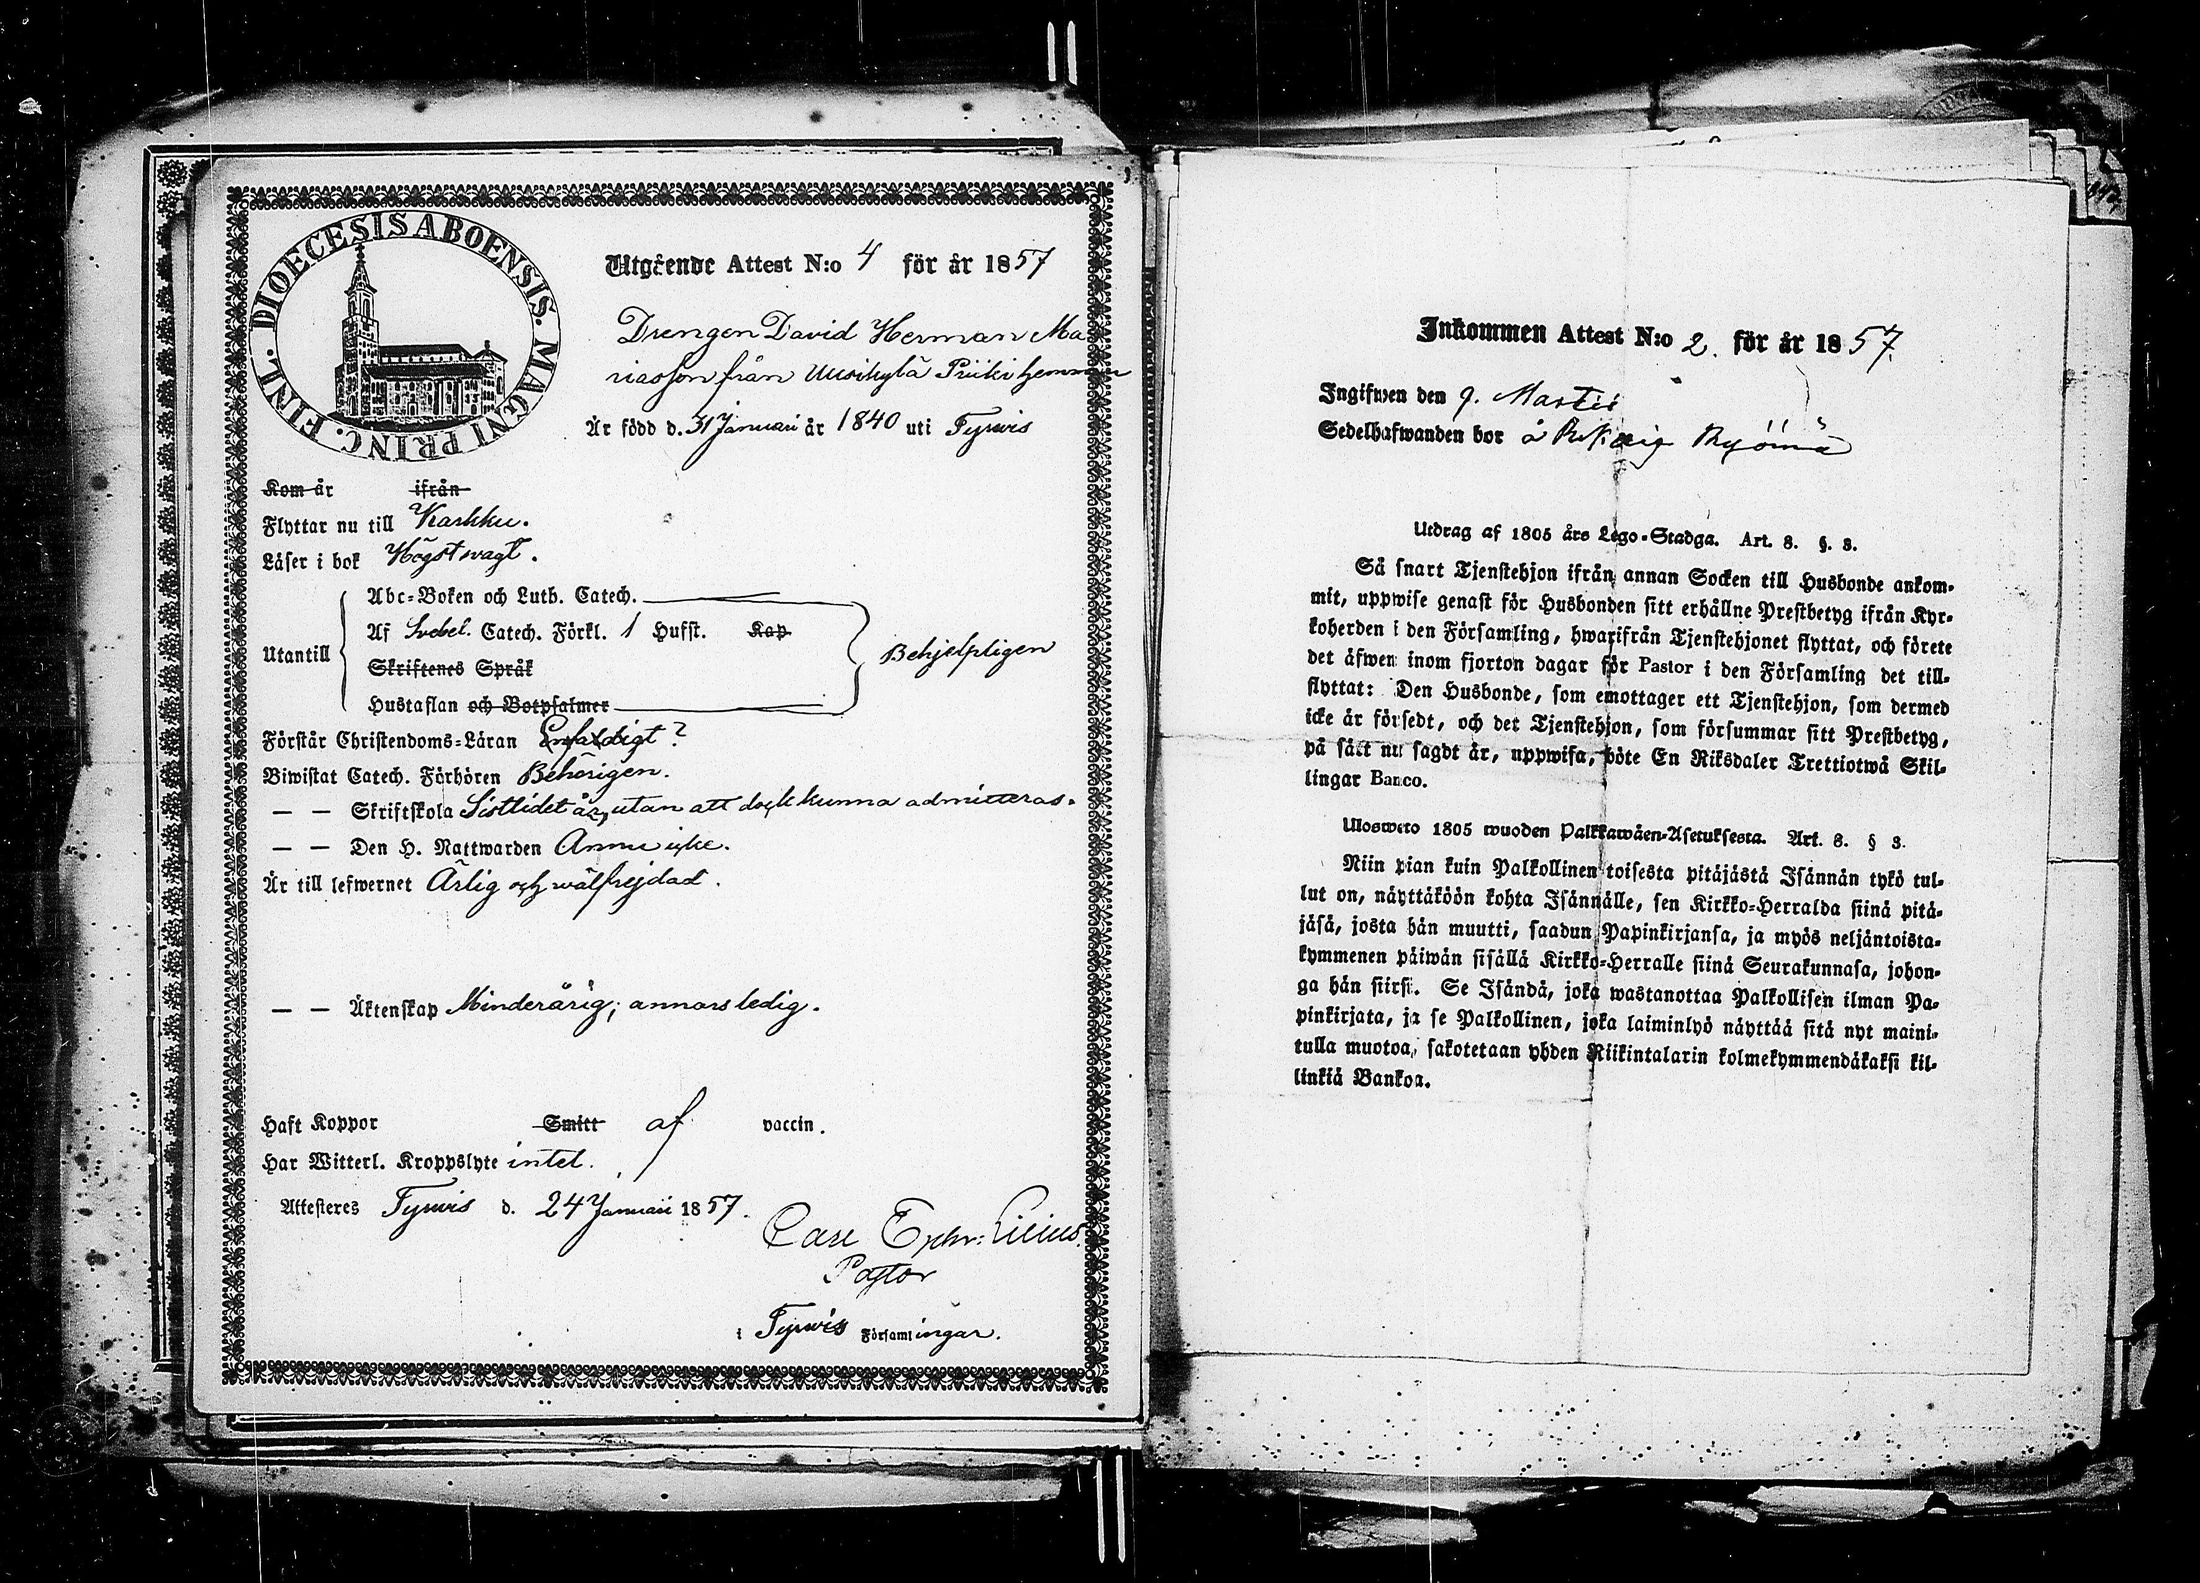 DIOECESIS ABOENSIS. MAGNI PRINC. FINL.
Utgående Attest N:o 4 för år 1857
Drengen David Herman Ma
riasson från Uusikylä Priiki hemman
Är född d. 31 Januari år 1840 uti Tyrwis
Kom år ifrån
Flyttar nu till Karkku.
Läser i bok Högst svagt.
Abc-Boken och Luth. Catech.
Af Svebel. Catech. Förkl. 1 Hufst. Kap
Utantill
Skriftenes Språk
Behjelpligen
Hustaflan och Botpsalmer
Förstår Christendoms-Läran Enfaldigt?
Biwistat Catech. Förhören Behörigen.
— — Skriftskola Sistlidet år, utan att dock kunna admitteras.
— — Den H. Nattwarden Ännu icke.
Är till lefwernet Ärlig och wälfrejdad.
— — Äktenskap Minderårig; annars ledig.
Haft Koppor Smitt af vaccin.
Har Witterl. Kroppslyte intet.
Attesteres Tyrwis d. 24 Januari 1857.
Carl Ephr: Lilius.
Pastor
i Tyrwis Församlingar.
Inkommen Attest N:o 2. för år 1857.
Ingifwen den 9. Martii
Sedelhafwanden bor å
Utdrag af 1805 års Lego-Stadga. Art. 8. §. 3.
Så snart Tjenstehjon ifrån annan Socken till Husbonde ankom-
mit, uppwise genast för Husbonden sitt erhållne Prestbetyg ifrån Kyr-
koherden i den Församling, hwarifrån Tjenstehjonet flyttat, och förete
det äfwen inom fjorton dagar för Pastor i den Församling det till-
flyttat: Den Husbonde, som emottager ett Tjenstehjon, som dermed
icke är försedt, och det Tjenstehjon, som försummar sitt Prestbetyg,
på sätt nu sagdt är, uppwisa, böte En Riksdaler Trettiotwå Skil-
lingar Banco.
Ulosweto 1805 wuoden Palkkawäen-Asetuksesta. Art. 8. § 3.
Niin pian kuin Palkollinen toisesta pitäjästä Isännän tykö tul-
lut on, näyttäköön kohta Isännälle, sen Kirkko-Herralda siinä pitä-
jäsä, josta hän muutti, saadun Papinkirjansa, ja myös neljäntoista-
kymmenen päiwän sisällä Kirkko-Herralle siinä Seurakunnasa, johon-
ga hän siirsi. Se Isändä, joka wastanottaa Palkollisen ilman Pa-
pinkirjata, ja se Palkollinen, joka laiminlyö näyttää sitä nyt maini-
tulla muotoa, sakotetaan yhden Riikintalarin kolmekymmendäkaksi kil-
linkiä Bankoa.